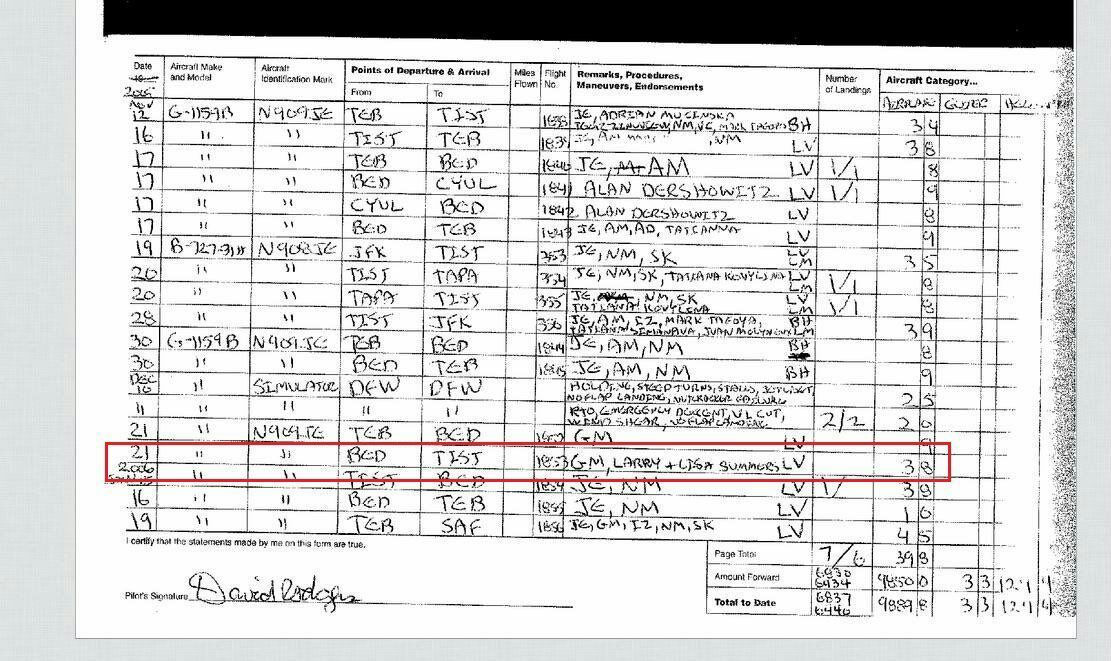 Date Aircraft Make and Model Aircraft Identification Mark Points of Departure & Arrival From To Miles Flown Flight No. Remarks, Procedures, Maneuvers, Endorsements Number of Landings Aircraft Category...
2005
NOV 12 G-1159B N909JE TEB TIST JE, ADRIAN BH 3 4
16 " " TIST TEB NM LV 3 8
17 " " TEB BED 1840 JE, AM LV 1/1 8
17 " " BED CYUL 1841 ALAN DERSHOWITZ LV 1/1 9
17 " " CYUL BED 1842 ALAN DERSHOWITZ LV 8
17 " " BED TEB 1843 JE, AM, AD, TATIANNA LV 9
19 B-727-31H N908JE JFK TIST 353 JE, NM, SK LV LM 3 5
20 " " TIST TAPA 354 JE, NM, SK, TATIANA KOVYLINA LV LM 1/1 8
20 " " TAPA TIST 355 JE, NM, SK TATIANA KOVYLINA LV LM 1/1 8
28 " " TIST JFK JE, AM, IZ, MARK BH LM 3 9
30 G-1159B N909JE TEB BED 1844 JE, AM, NM BH 8
30 " " BED TEB 1845 JE, AM, NM BH 9
DEC 10 " SIMULATOR DFW DFW HOLDING, STEEP TURNS, STALLS, NO FLAP LANDING, 2 5
11 " " " " RTO, EMERGENCY DESCENT, V1 CUT, WIND SHEAR, NO FLAP LANDING 2/2 2 0
21 " N909JE TEB BED GM LV 9
21 " " BED TIST 1853 GM, LARRY + LISA SUMMERS LV 3 8
2006
" " TIST BED 1854 JE, NM LV 1/ 3 8
16 " " BED TEB 1855 JE, NM LV 1 0
19 " " TEB SAF 1856 JE, GM, IZ, NM, SK LV 4 5
I certify that the statements made by me on this form are true.
Page Total 7/6 39 8
Amount Forward 6830 6434 9850 0 3 3
Pilot's Signature David Rodgers
Total to Date 6837 6440 9889 8 3 3